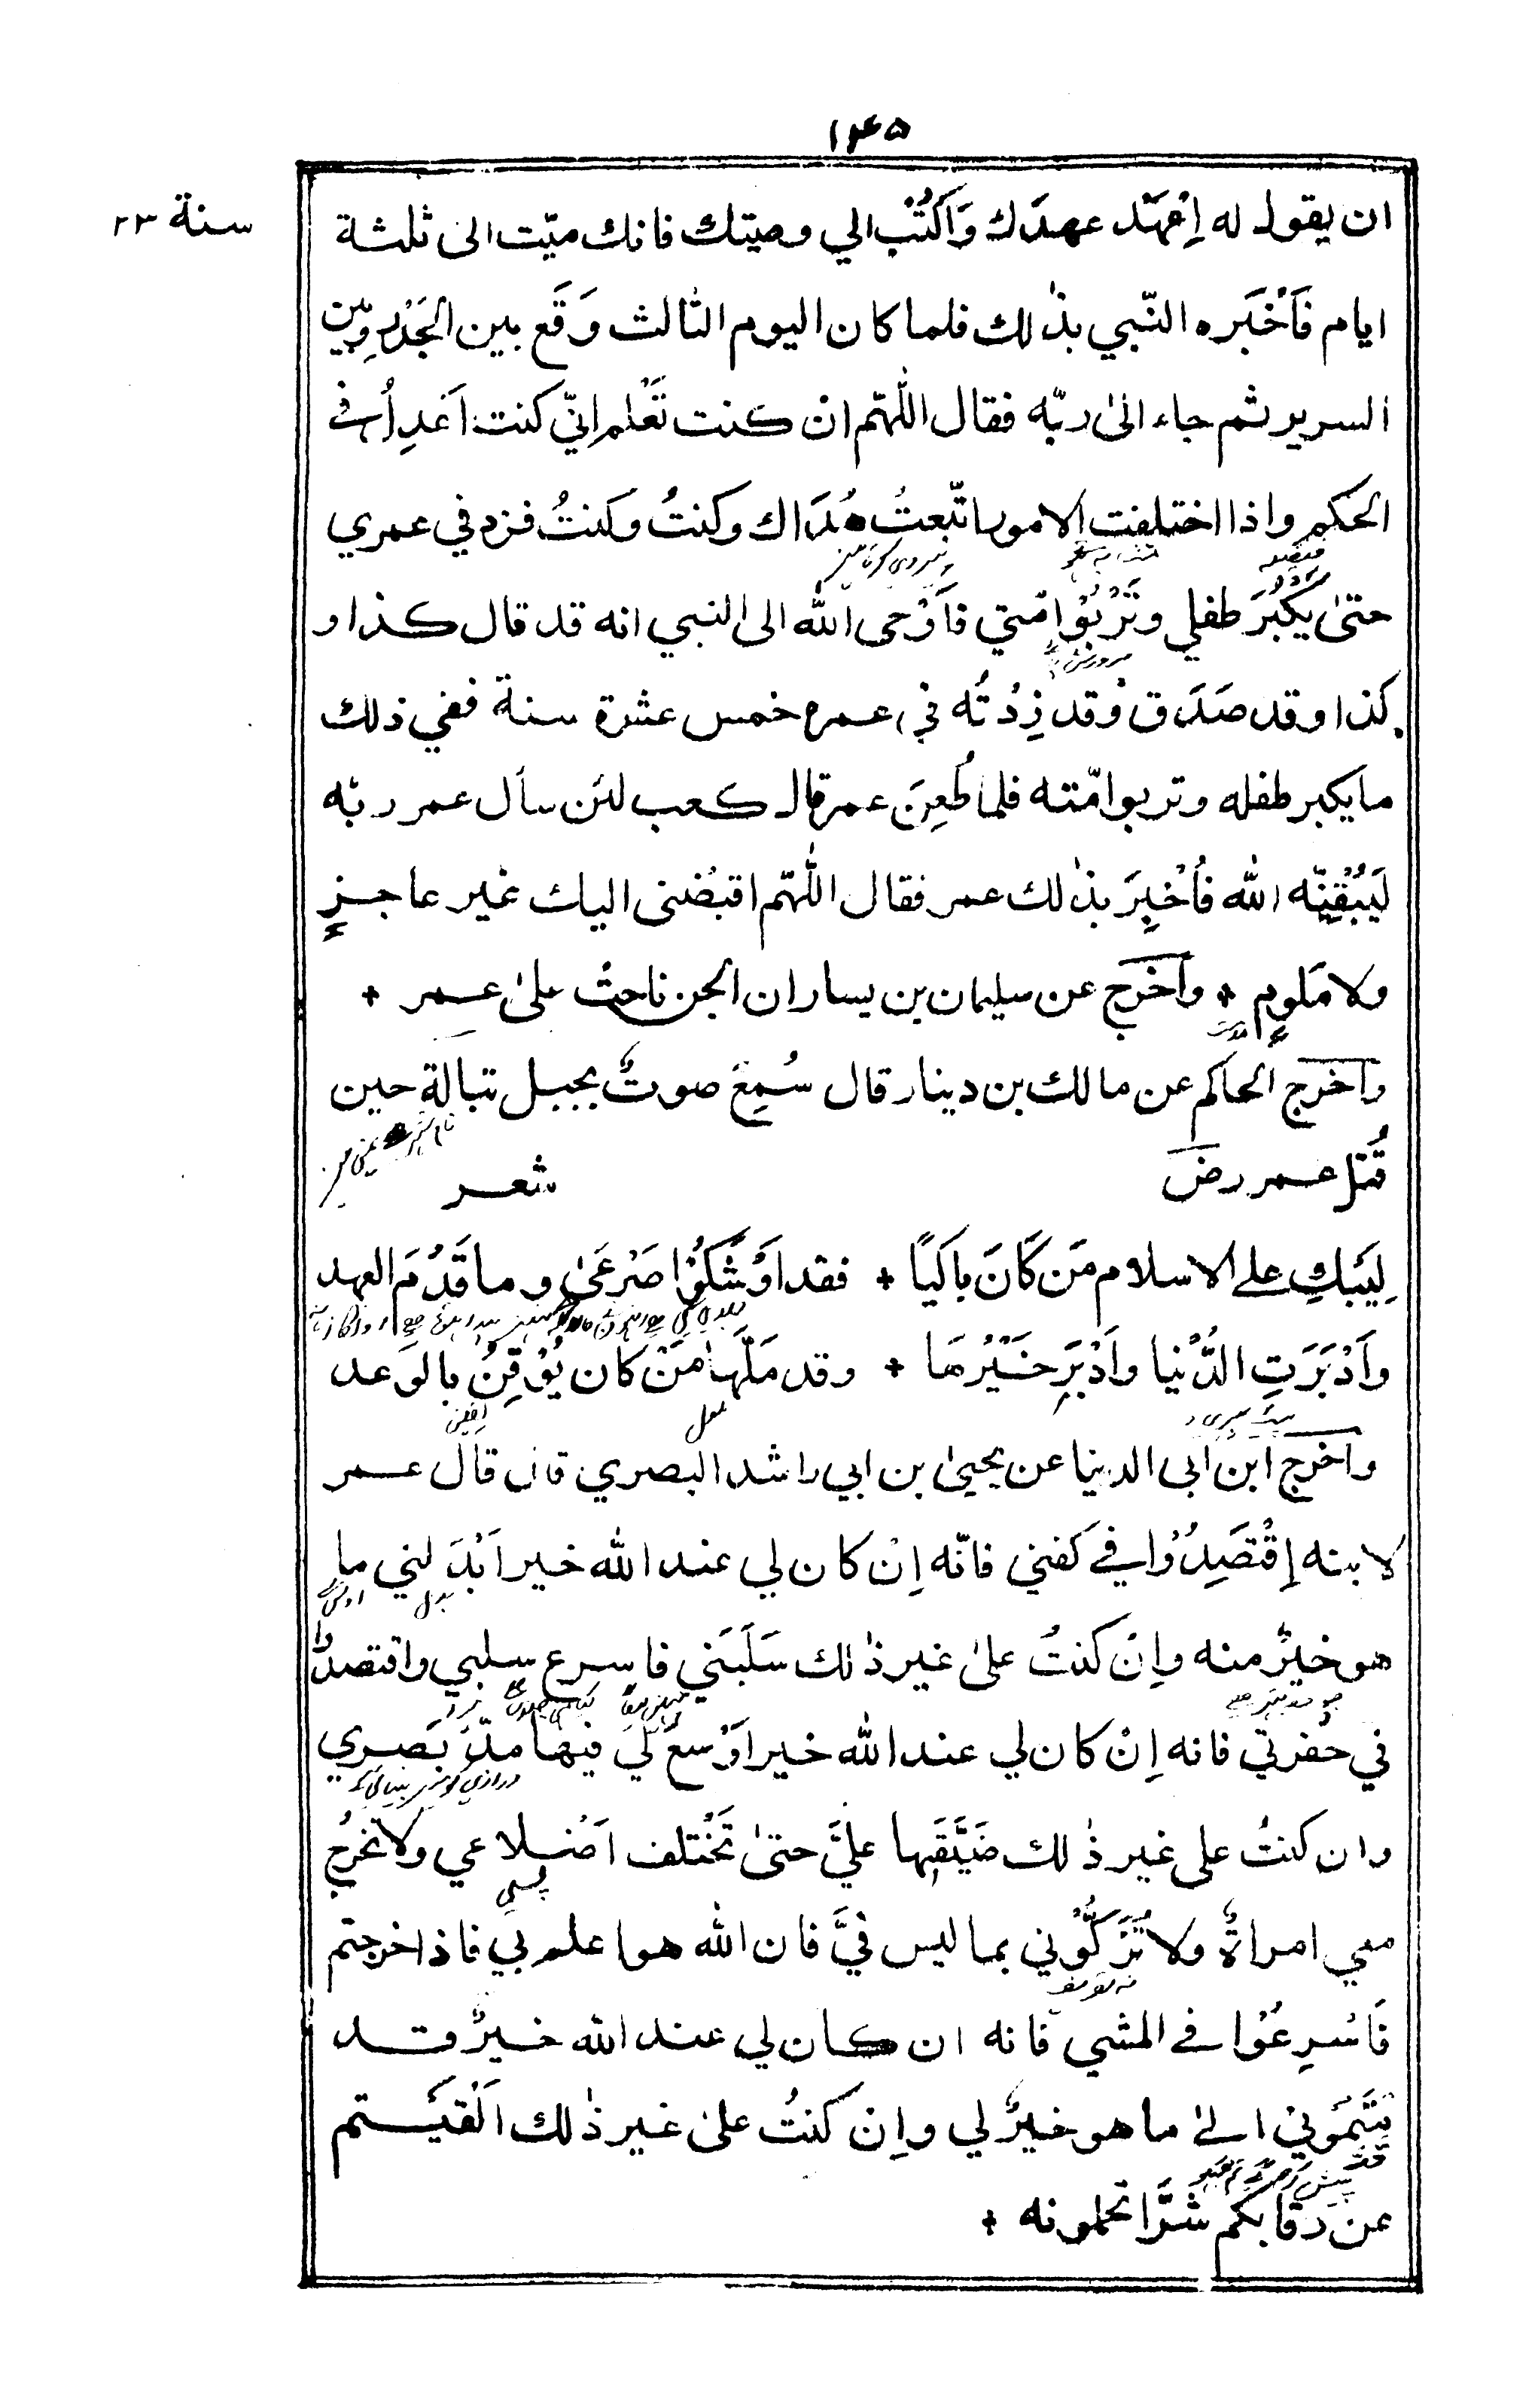 ١٤٥
سنة ٢٣
ان يقول له اِعْهَدْ عهدَك وَاكْتُبْ الي وصيتك فانك ميّت الى ثلثة
ايام فَاَخْبَره النّبي بذٰلك فلما كان اليوم الثالث وَقَع بين الجَدْرِ وبين
السرير ثم جاء الىٰ ربّه فقال اللّٰهمّ انْ كنت تَعْلم انّي كنت اَعْدِلُ في
الحكم واذا اختلفت الامور اتّبعتُ هُدَاك وكنتُ وكنتُ فزد في عمري
حتىٰ يَكْبُرَ طفلي وتَرْبُوْ اُمّتي فاَوْحى الله الى النبي انه قد قال كذا و
كذا وقد صَدَق وقد زِدْتُه في عمره خمس عشرة سنة ففي ذلك
ما يكبر طفله وتربو امّته فلما طُعِنَ عمر قال كعب لئن سأل عمر ربّه
لَيُبْقِيَنَّه الله فاُخْبِرَ بذٰلك عمر فقال اللّٰهمّ اقبضنى اليك غير عاجزٍ
ولا مَلومٍ * واَخرج عن سليمان بن يسار ان الجن ناحت علىٰ عمر *
واَخرج الحاكم عن مالك بن دينار قال سُمِعَ صوتٌ بجبل تبالة حين
قُتل عمر رضـ
شعر
لِيَبْكِ على الاسلام مَن كَانَ باكيًا * فقد اَوْشَكُوْا صَرْعَىٰ وما قَدُمَ العهد
واَدْبَرَتِ الدُّنْيا واَدْبَرَ خَيْرُهَا * وقد مَلَّها مَنْ كان يُوْقِنُ بالوَعد
واَخرج ابن ابى الدنيا عن يحيىٰ بن ابي راشد البصري قال قال عمر
لابنه اِقْتَصِدُوا في كَفني فانّه اِنْ كان لي عند الله خير اَبْدَلني ما
هو خيرٌ منه واِنْ كنتُ علىٰ غير ذٰلك سَلَبَني فاسرع سلبي واقتصدُوا
في حُفرتي فانه اِنْ كان لي عند الله خير اَوْسعَ لي فيها مدَّ بَصَري
وان كنتُ على غير ذٰلك ضَيَّقَها عليَّ حتىٰ تَخْتلف اَضْلاعي ولا تخرجُ
معي امراةٌ ولا تُزَكُّوْني بما ليس فيَّ فان الله هو اعلم بي فاذا خرجتم
فَاَسْرِعُوْا في المشي فانه ان كان لي عند الله خيرٌ قد
متموني الىٰ ما هو خيرٌ لي واِن كنتُ علىٰ غير ذٰلك اَلْقَيْتم
عن رقابكم شَرًّا تحملونه *